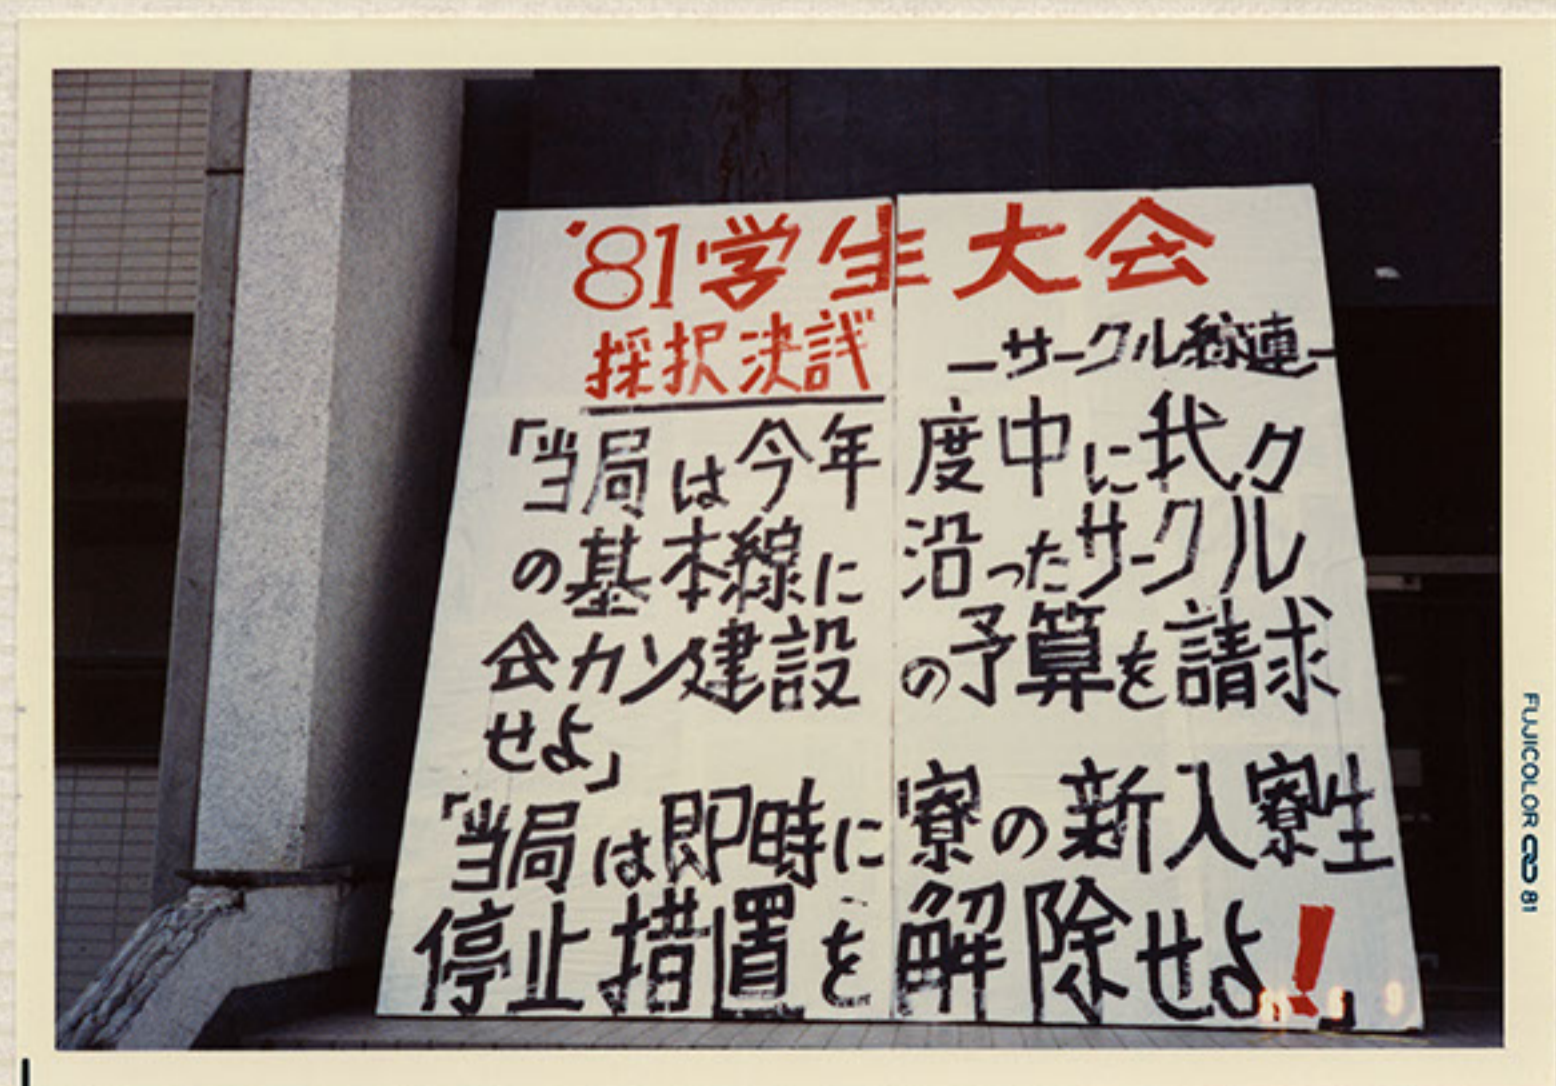 '81学生大会
採択決議
—サークル総連—
「当局は今年度中に我々
の基本線に沿ったサークル
会カン建設の予算を請求
せよ」
「当局は即時に寮の新入寮生
停止措置を解除せよ!」
FUJICOLOR 81